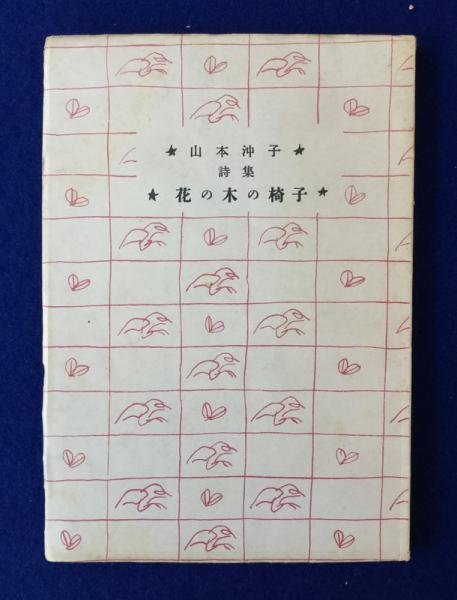 ★山本沖子★
詩集
★花の木の椅子★